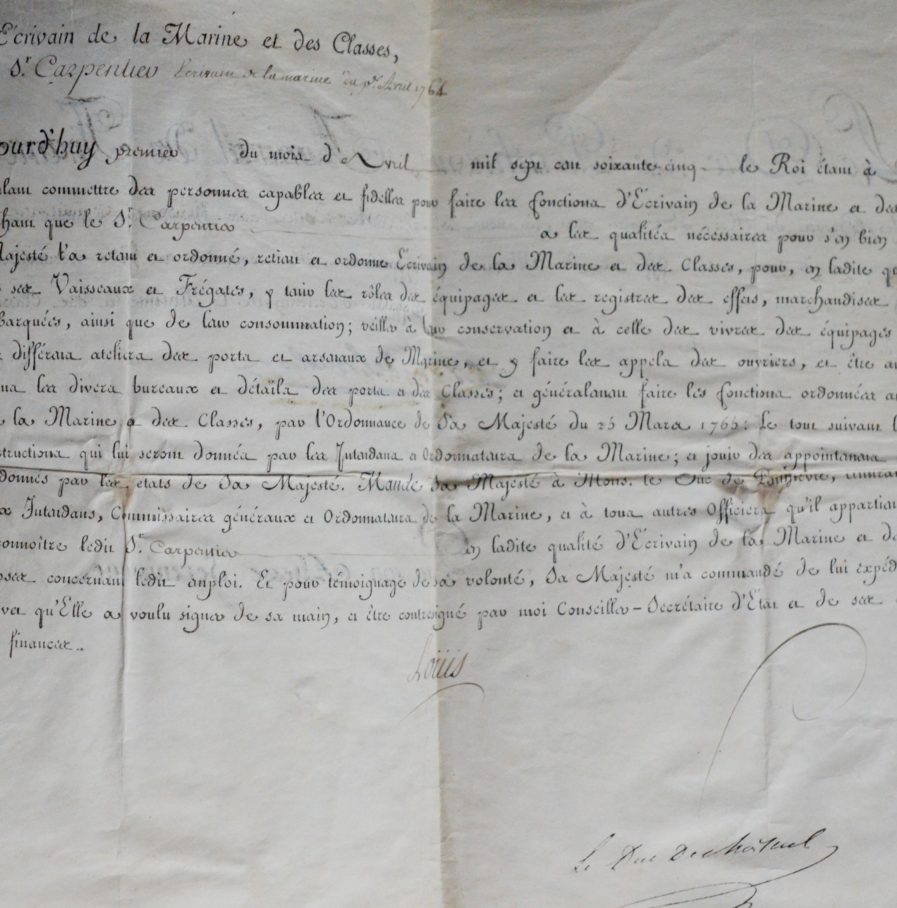 Ecrivain de la Marine et des Classes,
Sr. Carpentier Ecrivain de la marine du pr. Avril 1764
ourd'huy premier du mois d'Avril mil sept cen soixante cinq le Roi étant à
ulant commettre des personnes capables et fidelles pour faire les fonctions d'Ecrivain de la Marine et des
chant que le Sr. Carpentier a les qualités nécessaires pour s'en bien
Majesté l'a retenu et ordonné, retient et ordonne Ecrivain de la Marine et des Classes, pour, en ladite qu
ses Vaisseaux et Frégates, y tenir les rôles des équipages et les registres des effets, marchandises
barquées, ainsi que de leur consommation; veiller à leur conservation et à celle des vivres des équipages
différens ateliers des ports et arsenaux de Marine, et y faire les appels des ouvriers, et être au
les divers bureaux et détails des ports et des Classes; et généralement faire les fonctions ordonnées au
la Marine et des Classes, par l'Ordonnance de Sa Majesté du 25 Mars 1765: Le tout suivant l
structions qui lui seront données par les Intendans et Ordonnateurs de la Marine; et jouir des appointemens
donnés par les états de Sa Majesté. Mande Sa Majesté à Mons. le Duc de Penthièvre, Amiral
x Intendans, Commissaires généraux et Ordonnateurs de la Marine, et à tous autres Officiers qu'il appartien
connoître ledit Sr. Carpentier en ladite qualité d'Ecrivain de la Marine et de
oses concernant ledit emploi. Et pour témoignage de sa volonté, Sa Majesté m'a commandé de lui expéd
vet qu'Elle a voulu signer de sa main, et être contresigné par moi Conseiller-Secrétaire d'Etat et de ses
financer..
Loüis
Le Duc De choiseul